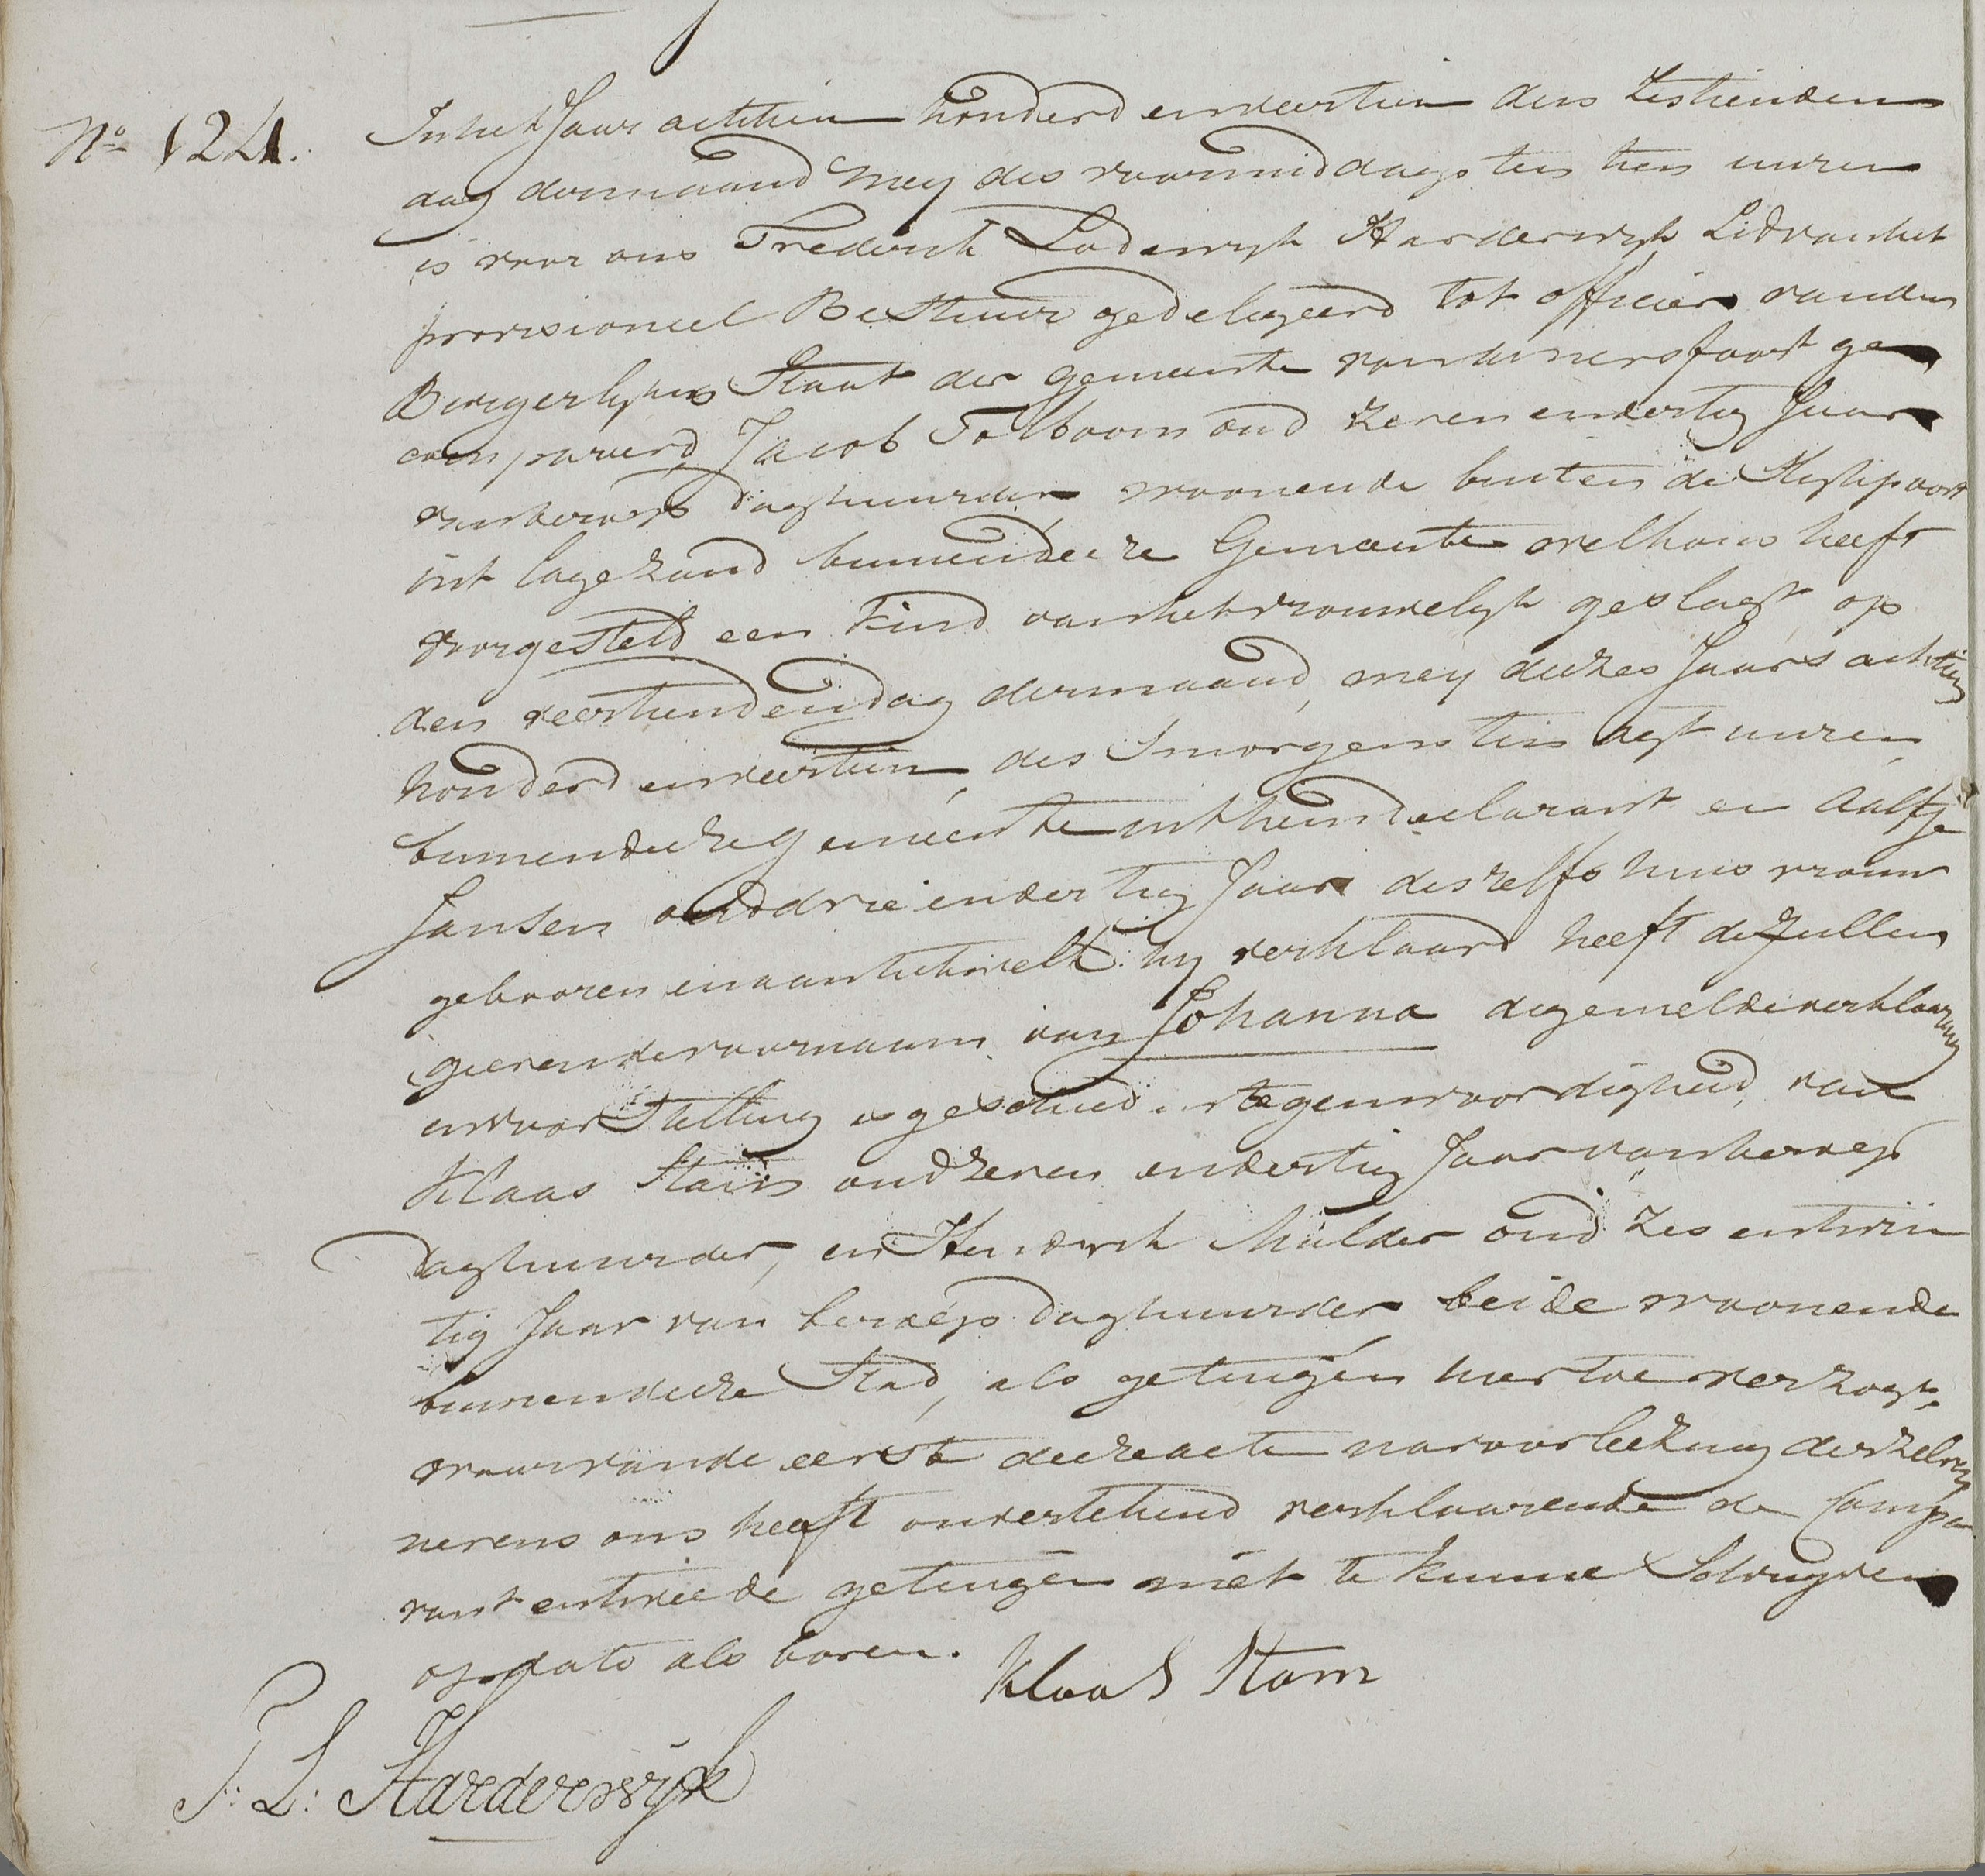 No 124.
In het Jaar achttien honderd en veertien den Zestienden
dag der maand Mey des voormiddags ten tien uuren
is voor ons Frederik Lodewyk Harderwyk Lid van het
provisioneel Bestuur gedelegeerd tot officier van den
Burgerlyken Staat der gemeente van Amersfoort ge
compareerd Jacob Tolboom oud zeven en dertig Jaar
van beroep daghuurder woonende buiten de
int lage zand binnen deeze Gemeente welke ons heeft
voorgesteld een Kind van het vrouwelyk geslagt op
den veertienden dag der maand mey deezes Jaars achttien
honderd en veertien des Smorgens ten agt uuren
binnen deeze gemeente uit hem declarant en Aaltje
Jansen oud drie en dertig Jaar deszelfs huis vrouw
gebooren en aan het welk hy verklaard heeft te zullen
geeven de voornaam van Johanna de gemelde verklaaring
en voor Stelling is geschied in tegenwoordigheid van
Klaas Stam oud zeven en dertig Jaar van beroep
daghuurder, en Hendrik Mulder oud zes en twin
tig Jaar van beroep daghuurder beide woonende
binnen deeze Stad, als getuigen hier toe verzogt,
waar van de eerste deeze acte na voorleezing derzelver
nevens ons heeft ondertekend verklaarende de Compa
rant en tweede getuigen niet te kunne Schryven
op dato als boven.
Klaas Stam
F: L: Harderwyk